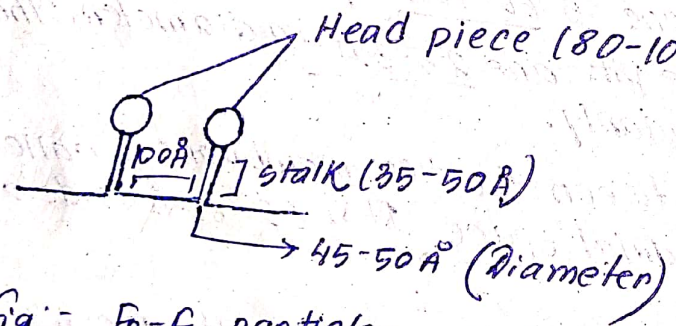 Head piece (80-10
100Å
stalk (35-50Å)
45-50Å (Diameter)
Fig:- F₀-F particle